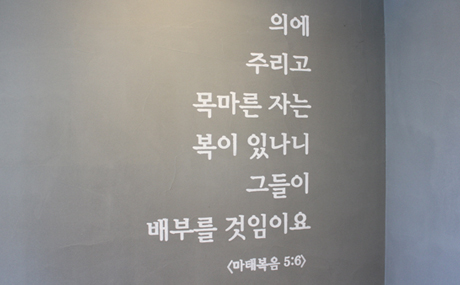 의에
주리고
목마른 자는
복이 있나니
그들이
배부를 것임이요
<마태복음 5:6>